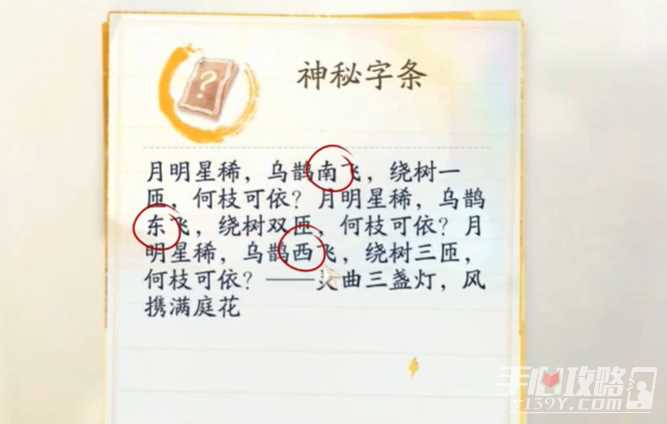 神秘字条
月明星稀，乌鹊南飞，绕树一
匝，何枝可依？月明星稀，乌鹊
东飞，绕树双匝，何枝可依？月
明星稀，乌鹊西飞，绕树三匝，
何枝可依？——灵曲三盏灯，风
携满庭花
手心攻略
y139y.com